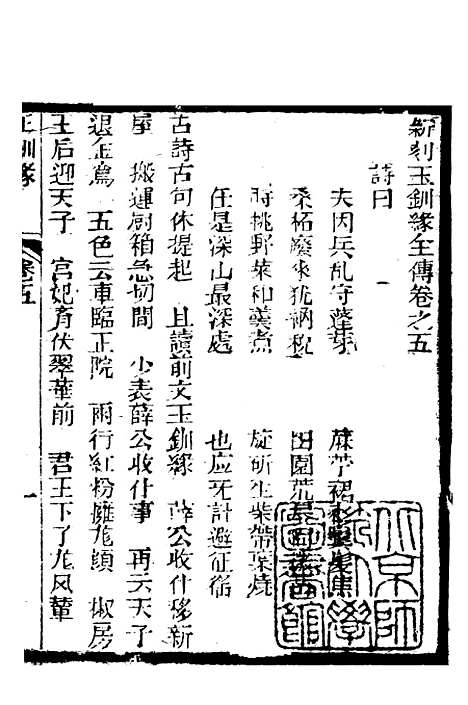 新刻玉釧緣全傳卷之五
詩曰
夫因兵乱守蓬茅　麻苧裙衫鬂髮焦
桑柘廢來猶納稅　田園荒
時挑野菜和羹煮　旋斫生柴帶葉燒
任是深山最深處　也应无計避征徭
古詩古句休提起　且讀前文玉釧緣　薛公收什移新
屋　搬運厨箱急切間　少表薛公收什事　再云天子
退金鸞　五色云車臨正院　兩行紅粉擁龙顔　椒房
王后迎天子　宮妃育伏翠華前　君王下了龙风輦
玉釧緣　卷五　一
北京師範大學圖書館